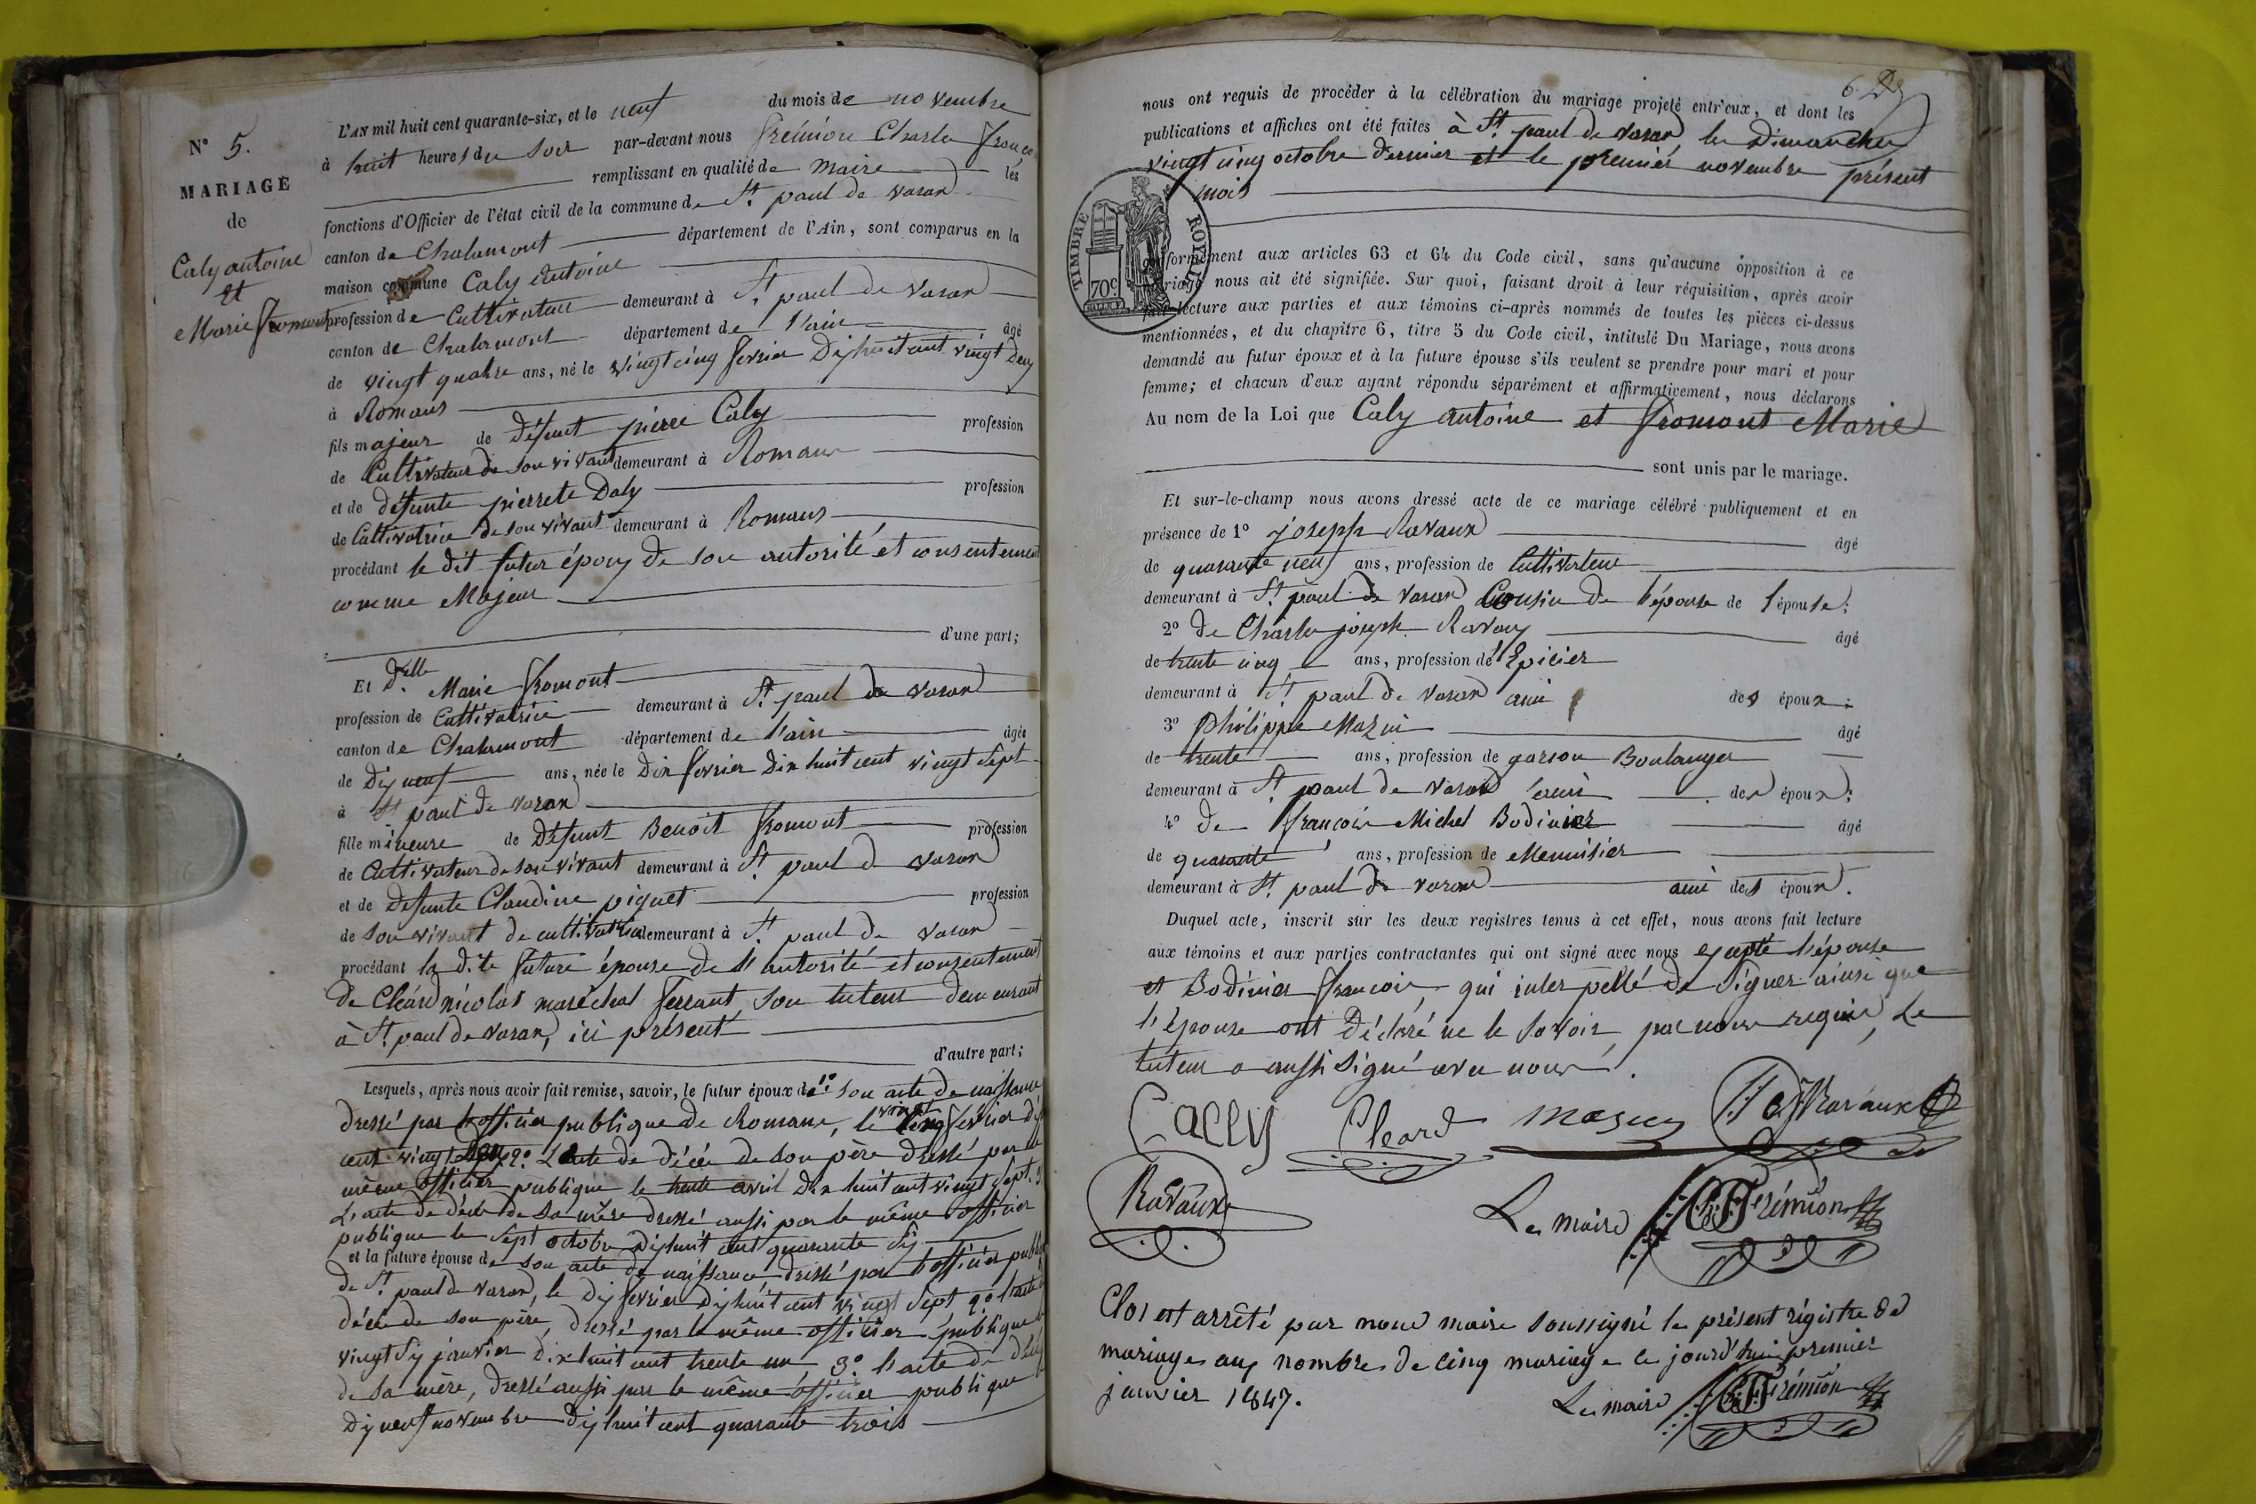 N° 5.
MARIAGE
de
Caly antoine
et
Marie fromont
L'AN mil huit cent quarante-six, et le neuf du mois de novembre
à huit heures du soir par-devant nous frémion Charles françois
remplissant en qualité de maire les
fonctions d'Officier de l'état civil de la commune de St. paul de varax
canton de Chalamont département de l'Ain, sont comparus en la
maison commune Caly Antoine
profession de Cultivateur demeurant à St. paul de varax
canton de Chalamont département de l'ain âgé
de vingt quatre ans, né le vingt cinq fevrier Dixhuit cent vingt deux
à Romans
fils majeur de Défunt pierre Caly profession
de Cultivateur de son vivant demeurant à Romans
et de défunte pierrete Daly profession
de Cultivatrice de son vivant demeurant à Romans
procédant le dit futur époux de son autorité et consentement
comme Majeur
d'une part;
Et Dlle. Marie fromont
profession de Cultivatrice demeurant à St. paul de varax
canton de Chalamont département de l'ain âgée
de dixneuf ans, née le Dix fevrier Dix huit cent vingt sept
à St paul de varax
fille mineure de Défunt Benoit fromont profession
de Cultivateur de son vivant demeurant à St. paul de varax
et de defunte Claudine piquet profession
de son vivant de cultivatrice demeurant à St. paul de varax
procédant la dite future épouse de l'autorité et consentement
de Cléard nicolas maréchal ferrant, son tuteur demeurant
à St. paul de varax, ici présent
d'autre part;
Lesquels, après nous avoir fait remise, savoir, le futur époux de 1° son acte de naissance
dressé par l'officier publique de Romans, le vingt cinq fevrier dix
cent vingt deux 2° L'acte de décée de son père dressé par le
même officier publique le trente avril Dix huit cent vingt sept. 3
L'acte de décée de sa mère dressé aussi par le même officier
publique le sept octobre Dixhuit cent quarante six
et la future épouse de son acte de naissance, dressé par l'officier public
de St. paul de varax, le dix fevrier dixhuit cent vingt sept 2° l'acte de
décée de son père, dressé par le même officier publique le
vingt six janvier dix huit cent trente un 3° l'acte de décée
de sa mère, dressé aussi par le même officier publique le
Dixneuf novembre Dixhuit cent quarante trois
6.
nous ont requis de procéder à la célébration du mariage projeté entr'eux, et dont les
publications et affiches ont été faites à St. paul de varax, les Dimanches
vingt cinq octobre dernier et le premier novembre présent
mois
TIMBRE ROYAL
70c
conformément aux articles 63 et 64 du Code civil, sans qu'aucune opposition à ce
mariage nous ait été signifiée. Sur quoi, faisant droit à leur réquisition, après avoir
fait lecture aux parties et aux témoins ci-après nommés de toutes les pièces ci-dessus
mentionnées, et du chapitre 6, titre 5 du Code civil, intitulé Du Mariage, nous avons
demandé au futur époux et à la future épouse s'ils veulent se prendre pour mari et pour
femme; et chacun d'eux ayant répondu séparément et affirmativement, nous déclarons
Au nom de la Loi que Caly antoine et fromont Marie
sont unis par le mariage.
Et sur-le-champ nous avons dressé acte de ce mariage célébré publiquement et en
présence de 1° joseph Ravaux âgé
de quarante neuf ans, profession de Cultivateur
demeurant à St. paul de varax Cousin de l'épouse de l'épouse;
2° de Charles joseph Ravaux âgé
de trente cinq ans, profession de Epicier
demeurant à St. paul de varax ami des époux;
3° Philippe Mazui âgé
de trente ans, profession de garson Boulanger
demeurant à St. paul de varax l'ami des époux;
4° de françois Michel Bodinier âgé
de quarante ans, profession de Menuisier
demeurant à St. paul de varax ami des époux.
Duquel acte, inscrit sur les deux registres tenus à cet effet, nous avons fait lecture
aux témoins et aux parties contractantes qui ont signé avec nous excepté l'épouse
et Bodinier françois, qui interpellé de signer ainsi que
l'épouse ont déclaré ne le savoir, par nous requis, Le
tuteur a aussi signé avec nous.
Cally Cleard Ravaux
Ravaux
Le maire frémion
Clos et arrêté par nous maire soussigné le présent régistre de
mariages aux nombres de cinq mariage ce jourd'hui premier
janvier 1847.
Le maire frémion